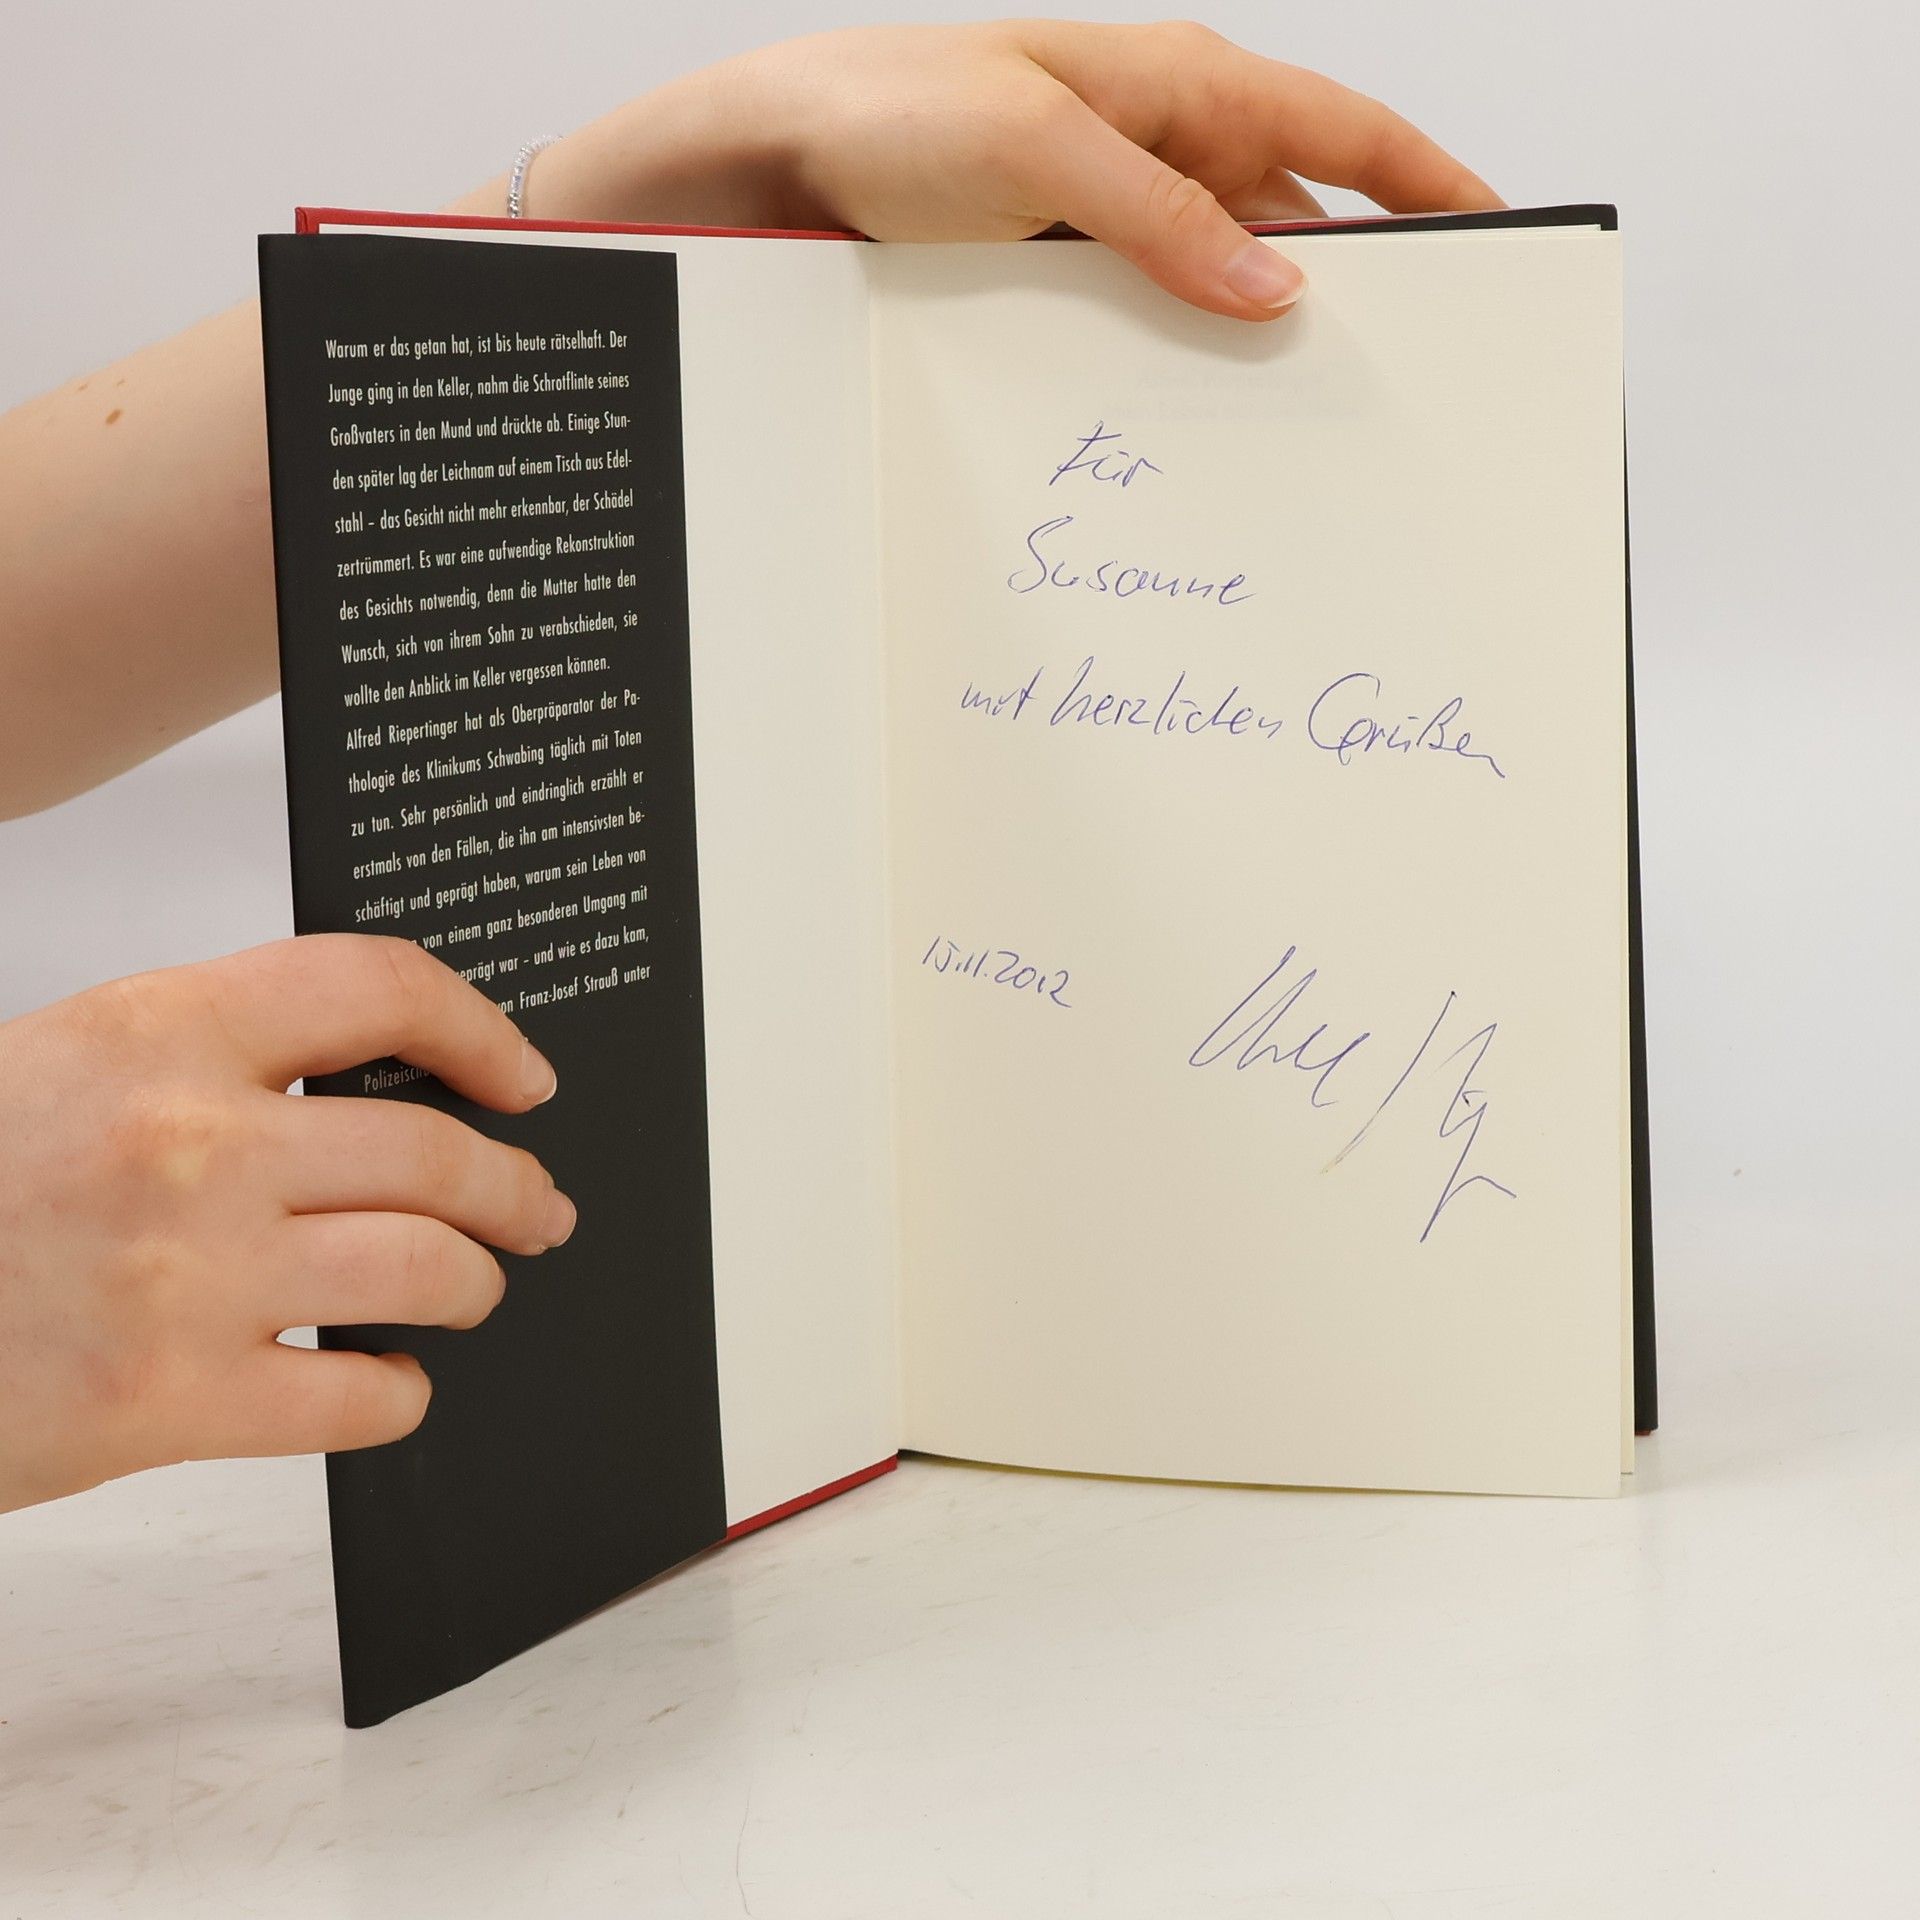 Warum er das getan hat, ist bis heute rätselhaft. Der
Junge ging in den Keller, nahm die Schrotflinte seines
Großvaters in den Mund und drückte ab. Einige Stun-
den später lag der Leichnam auf einem Tisch aus Edel-
stahl – das Gesicht nicht mehr erkennbar, der Schädel
zertrümmert. Es war eine aufwendige Rekonstruktion
des Gesichts notwendig, denn die Mutter hatte den
Wunsch, sich von ihrem Sohn zu verabschieden, sie
wollte den Anblick im Keller vergessen können.
Alfred Riepertinger hat als Oberpräparator der Pa-
thologie des Klinikums Schwabing täglich mit Toten
zu tun. Sehr persönlich und eindringlich erzählt er
erstmals von den Fällen, die ihn am intensivsten be-
schäftigt und geprägt haben, warum sein Leben von
von einem ganz besonderen Umgang mit
geprägt war – und wie es dazu kam,
von Franz-Josef Strauß unter
Für
Susanne
mit herzlichen Grüßen
15.11.2012